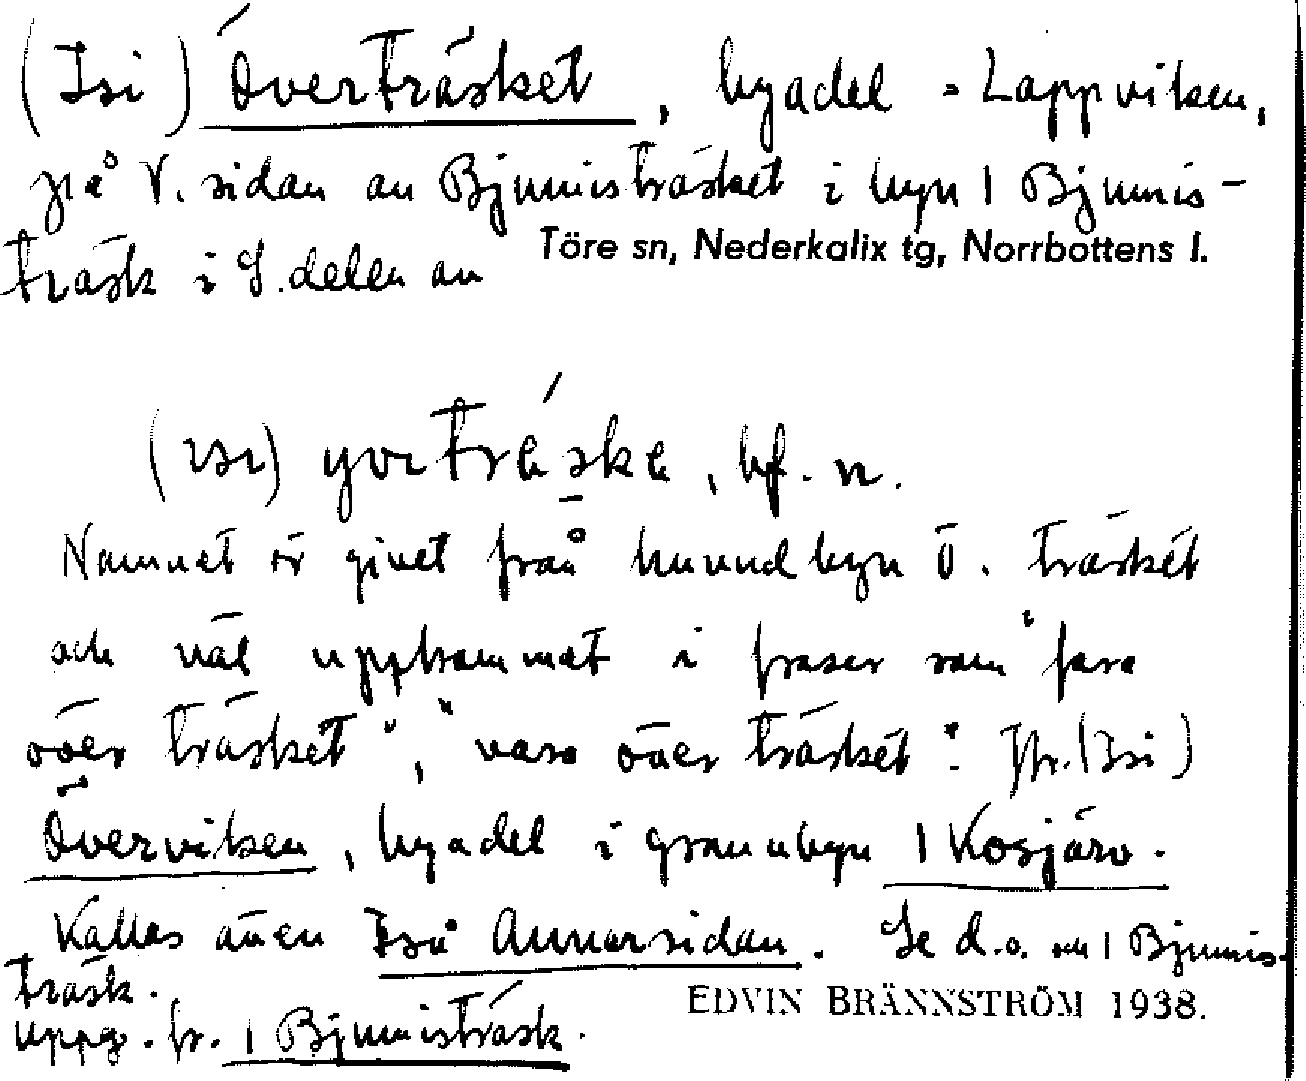 (Isi) Överträsket, byadel = Lappviken,
på V. sidan av Bjumisträsket i byn 1 Bjumis-
träsk i S. delen av
Töre sn, Nederkalix tg, Norrbottens l.
(ısı) yveträska, bf. n.
Namnet är givet från huvudbyn ö. träsket
och väl uppkommet i fraser som "fara
över träsket", "vara över träsket". Jfr. (Isi)
Överviken, byadel i grannbyn 1 Kosjärv.
Kallas även Iså Annarsidan. Se d.o. om 1 Bjumis-
träsk.
Uppg. fr. 1 Bjumisträsk.
EDVIN BRÄNNSTRÖM 1938.